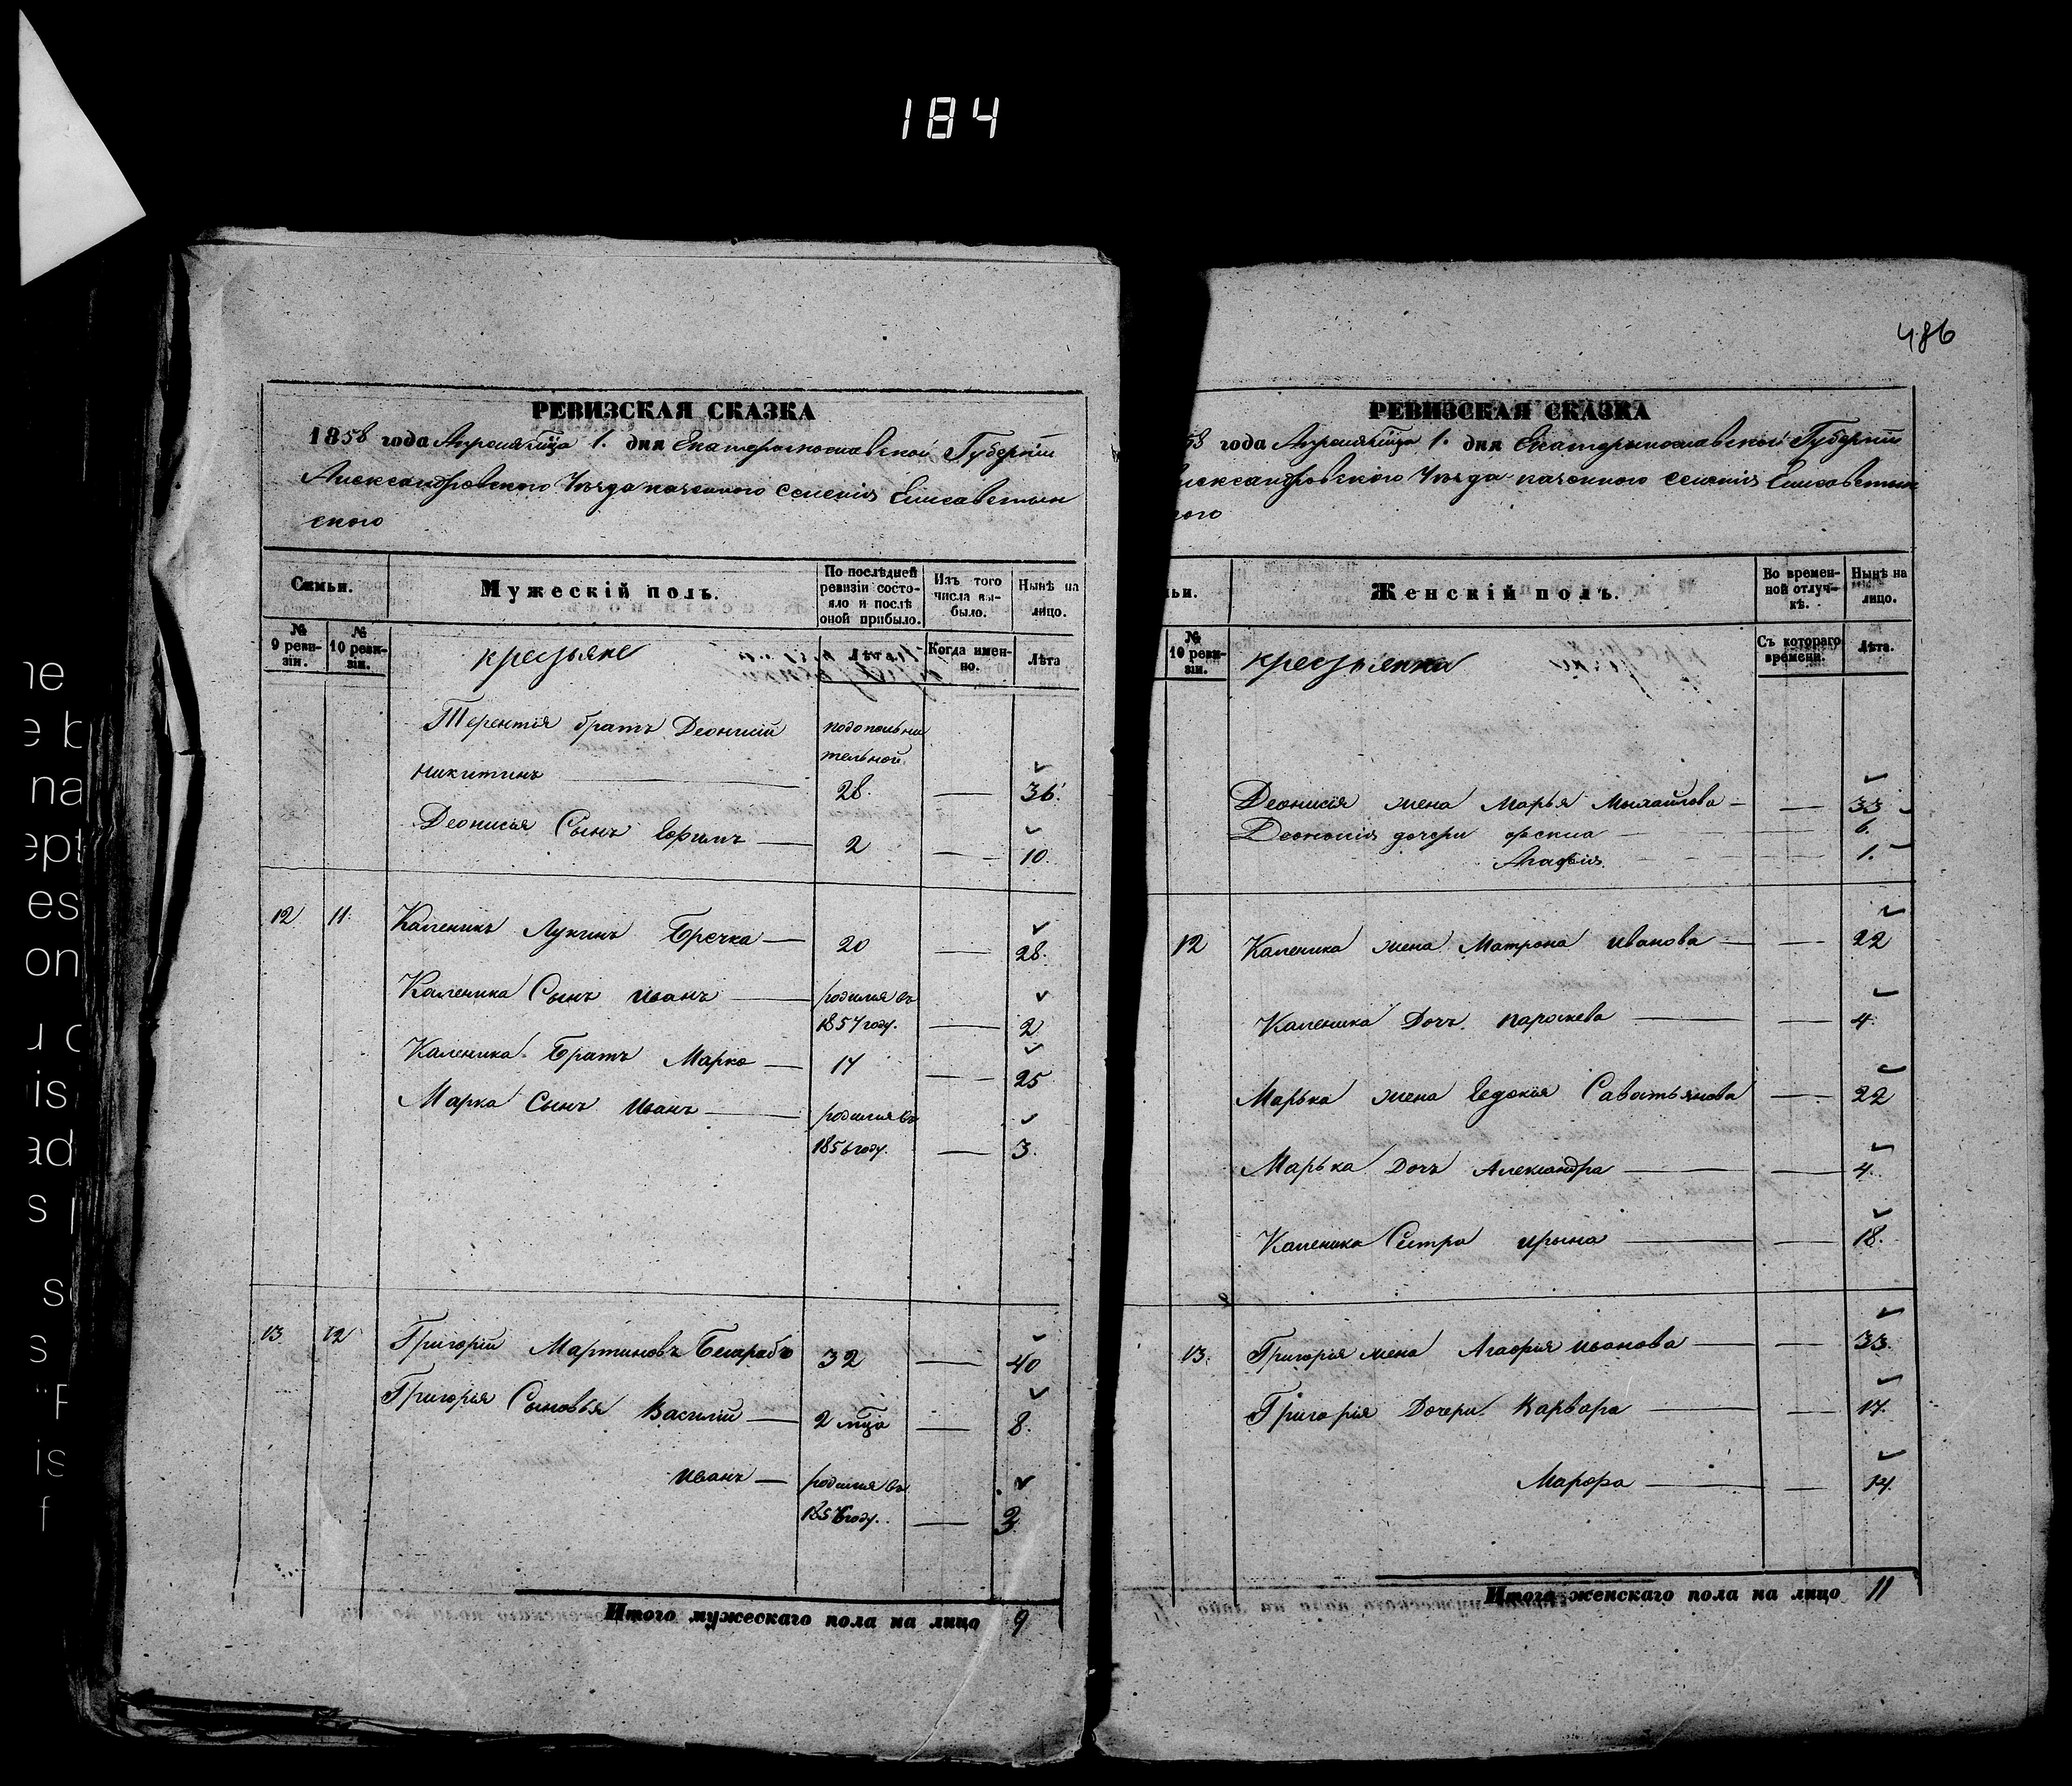 184
486
РЕВИЗСКАЯ СКАЗКА
1858 года Апреля мца 1. дня Екатеринославской Губерніи
Александровского Уезда казенного селенія Елисаветин
ского
Семьи.
Мужескій полъ.
По послѣдней ревизіи состояло и послѣ оной прибыло.
Изъ того числа выбыло.
Нынѣ на лицо.
№ 9 ревизіи.
№ 10 ревизіи.
крестьяне
Лѣта
Когда именно.
Лѣта
Терентія братъ Деонисій подополни
тельной
никитинъ 28. — 36.
Деонисія Сынъ Ефимъ — 2 — 10.
12 11. Каленикъ Лукинъ Гречка — 20 — 28.
Каленика Сынъ иванъ — родился въ
1857 году. — 2
Каленика Братъ Марко — 17 — 25
Марка Сынъ Иванъ — родился въ
1856 году. — 3.
13 12 Григорій Мартиновъ 32 — 40
Григорія Сыновья Василій — 2 мца — 8.
иванъ — родился въ
1856 году. — 3
Итого мужескаго пола на лицо 9
РЕВИЗСКАЯ СКАЗКА
58 года Апреля мца 1. дня Екатеринославской Губерніи
лександровскіого Уезда казенного селенія Елисаветин
кого
ьи.
Женскій полъ.
Во временной отлучкѣ.
Нынѣ на лицо.
№ 10 ревизіи.
крестьянки
Съ котораго времени.
Лѣта.
Деонисія жена Марья Михайлова — — 33
Деонисія дочери 6.
Агафія 1.
12 Каленика жена Матрона иванова — — 22
Каленика Дочь параскева — — 4.
Марька жена Евдокія Саватьянова — 22
Марька Дочь Александра — — 4.
Каленика Сестра ирина — — 18.
13. Григорія жена Агафія иванова — — 33.
Григорія Дочери Варвара — — 17.
Марфа — — 14.
Итого женскаго пола на лицо 11